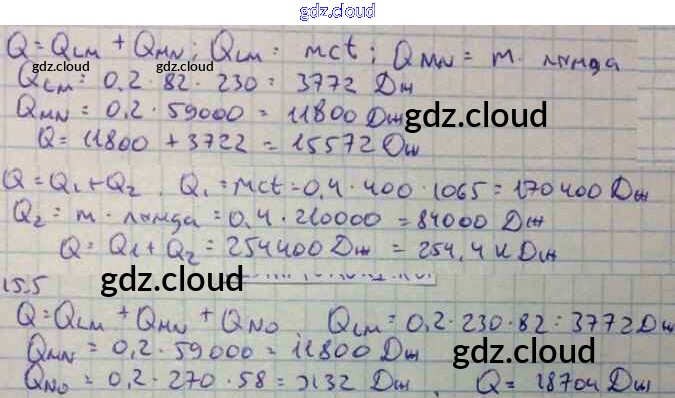 gdz.cloud
Q = QLM + QMN; QLM = mct; QMN = m · лямда
gdz.cloud gdz.cloud
QLM = 0,2 · 82 · 230 = 3772 Дж
QMN = 0,2 · 59000 = 11800 Дж
gdz.cloud
Q = 11800 + 3722 = 15572 Дж
Q = Q1 + Q2. Q1 = mct = 0,4 · 400 · 1065 = 170400 Дж
Q2 = m · лямда = 0,4 · 210000 = 84000 Дж
Q = Q1 + Q2 = 254400 Дж = 254,4 кДж
gdz.cloud
15.5
Q = QLM + QMN + QNO. QLM = 0,2 · 230 · 82 = 3772 Дж
QMN = 0,2 · 59000 = 11800 Дж
gdz.cloud
QNO = 0,2 · 270 · 58 = 3132 Дж. Q = 18704 Дж